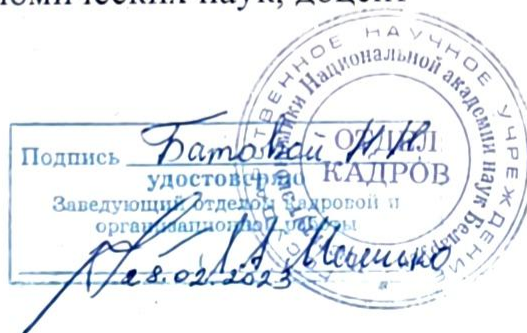 наук, доцент
Подпись Батовой Н.Н.
удостоверяю
Заведующий отделом кадровой и
организационной работы
28.02.2023
ОТДЕЛ
КАДРОВ
НАУЧНОЕ УЧРЕЖДЕНИЕ
Национальной академии наук